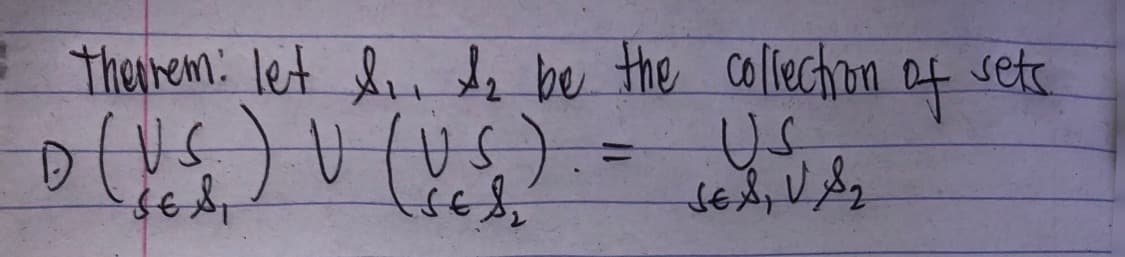 Theorem: let 𝒮₁, 𝒮₂ be the collection of sets
① (∪S) ∪ (∪S). = ∪S
S∈𝒮₁ S∈𝒮₂ S∈𝒮₁∪𝒮₂